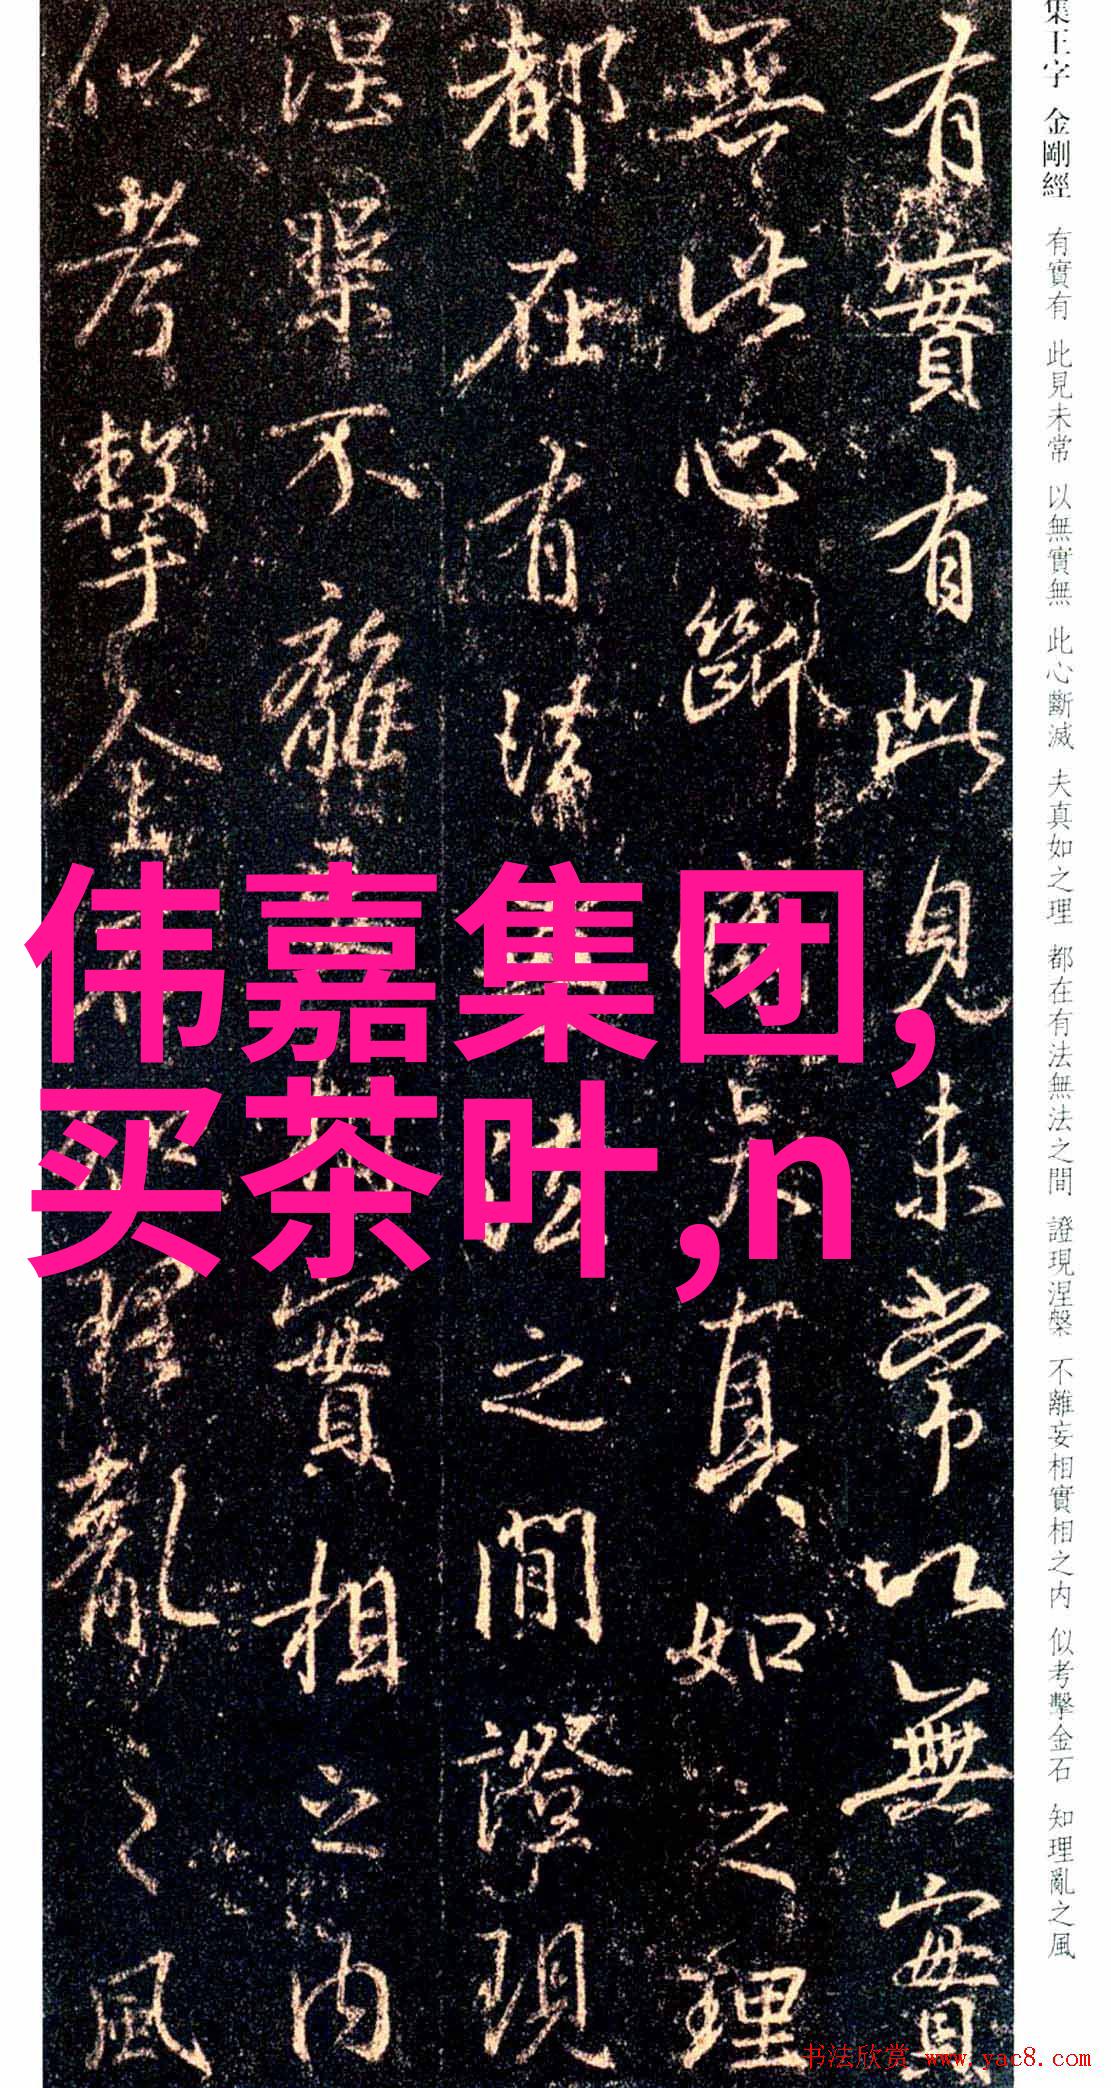 集王字 金剛經 有實有 此見未常 以無實無 此心斷滅 夫真如之理 都在有法無法之間 證現涅槃 不離妄相實相之内 似考擊金石 知理亂之風
有實有此見未常以無實
無此心斷滅夫真如之理
都在有法無法之間證現
涅槃不離妄相實相之内
似考擊金石知理亂之風
伟嘉集团,
买茶叶,n
书法欣赏 www.yac8.com